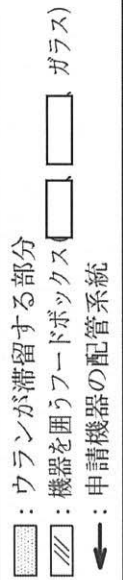 ：ウランが滞留する部分
：機器を囲うフードボックス( ガラス)
：申請機器の配管系統